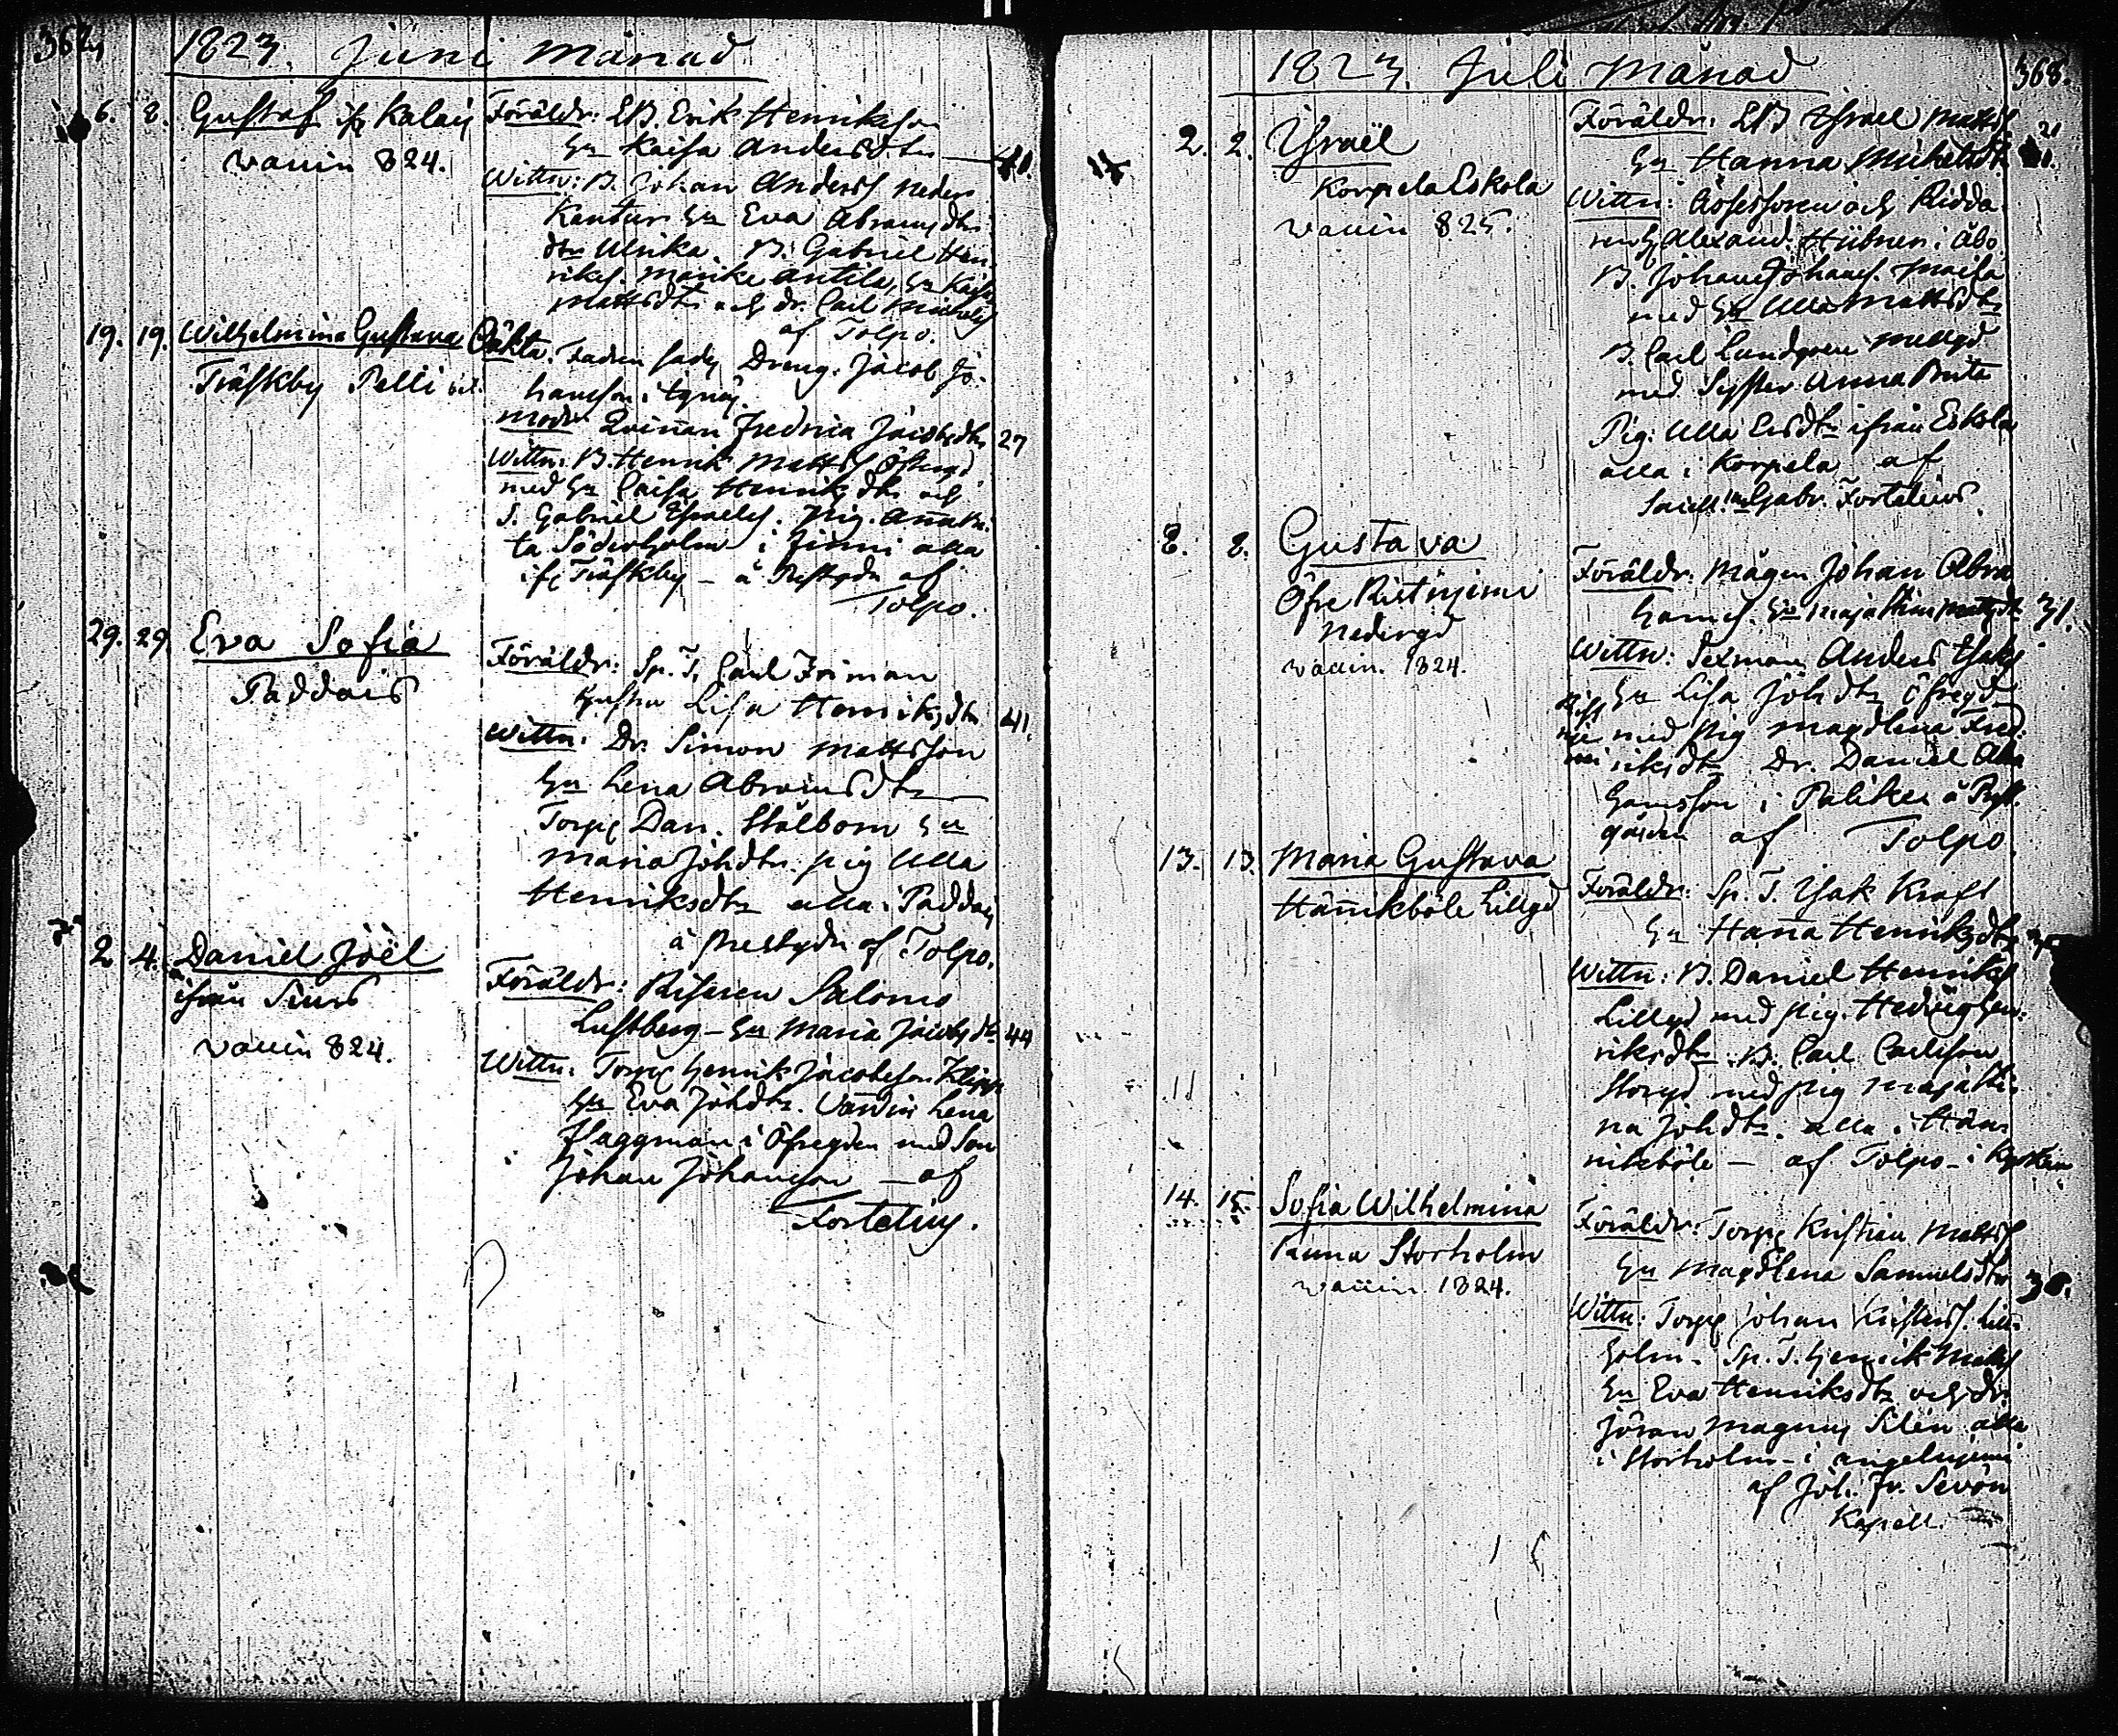 1823. Juni Månad
6. 8. Gustaf Kalais
vaccin 824.
Föräldr: LB. Erik Henriksson
Hu Kaisa Andersdtr
Wittn: B. Johan Anderss Neder
Kantur Hu Eva Abramsdtr
dtr Ulrika. B. Gabriel Hen-
rikss. Antila, Hu Kaisa
Mattsdtr och dr. Carl Michelss
af Tolpo.
19. 19. Wilhelmina Gustava
Träskby Pelli
Oäkta. Fadren Dreng. Jacob Jo-
hansson i
Modr Qvinnan Fredrica Jacobsdtr 27
Wittn: B. Henrik Mattss
med Hu Caisa Henriksdtr och
S. Gabriel Israelss. Pig. Anna
ta Söderholm i alla
ifr Träskby - å Prestgdn af
Tolpo.
29. 29. Eva Sofia
Paddais
Föräldr: Sp. T. Carl Friman
Hustru Lisa Henriksdtr 41.
Wittn: Dr. Simon Mattsson
Hu Lena Abramsdtr
Torpe Dan. Stålbom Hu
Maria Johdtr. Pig Ulla
Henriksdtr alla i Paddais
å Prestgdn af Tolpo.
2 4. Daniel Joël
ifrån
vaccin 824.
Föräldr: Salomo
Lustberg - Hu Maria Jacobsdtr 44
Wittn: Torpe Henrik Jacobsson
Hu Eva Johdtr. Lena
Flaggman i Öfregden med Son
Johan Johansson - af
Fortelius.
1823. Juli Månad
368.
2. 2. Israël
Korpela Eskola
vaccin 825.
Föräldr: LB Israel Mattss
Hu Hanna Michelsdtr
Wittn: Assessoren och Ridda-
ren Alexand. Hübner i Åbo
B. Johan Johanss.
med Hu Ulla Mattsdtr
B. Carl Lundgren Mellgd
med Syster Anna Brita
Pig: Ulla ifrån Eskola
alla i Korpela af
Gabr. Fortelius.
8. 8. Gustava
Öfre Ristiniemi
Nedergd
vaccin. 1824.
Föräldr: Mågen Johan Abra
hamss. Hu Maja 31.
Wittn: Anders Isaks
Hu Lisa Johdtr Öfregd
med Pig Magdlena Fred-
riksdtr Dr. Daniel Abra
hamsson i å Prest-
gården af Tolpo
13. 13. Maria Gustava
Hännikböle Lillgd
Föräldr: Sp. T. Isak Kraft
Hu Hanna Henriksdtr
Wittn: B. Daniel Henrikss
Lillgd med Pig. Hedvig Hen-
riksdtr B. Carl Carlsson
Storgd med Pig Maja Sti-
na Johdtr. alla i Hän-
nikböle - af Tolpo - i
14. 15. Sofia Wilhelmina
Runa Storholm
vaccin 1824.
Föräldr: Torpe Kristian Mattss
Hu Magdlena Samuelsdtr
Wittn: Torpe Johan Lill-
holm. Sp. T. Henrik Mattss
Hu Eva Henriksdtr och dr.
Jöran Magnus Silén alla
i Storholm - i Angelniemi
af Joh. Fr. Sevón
Kapell.